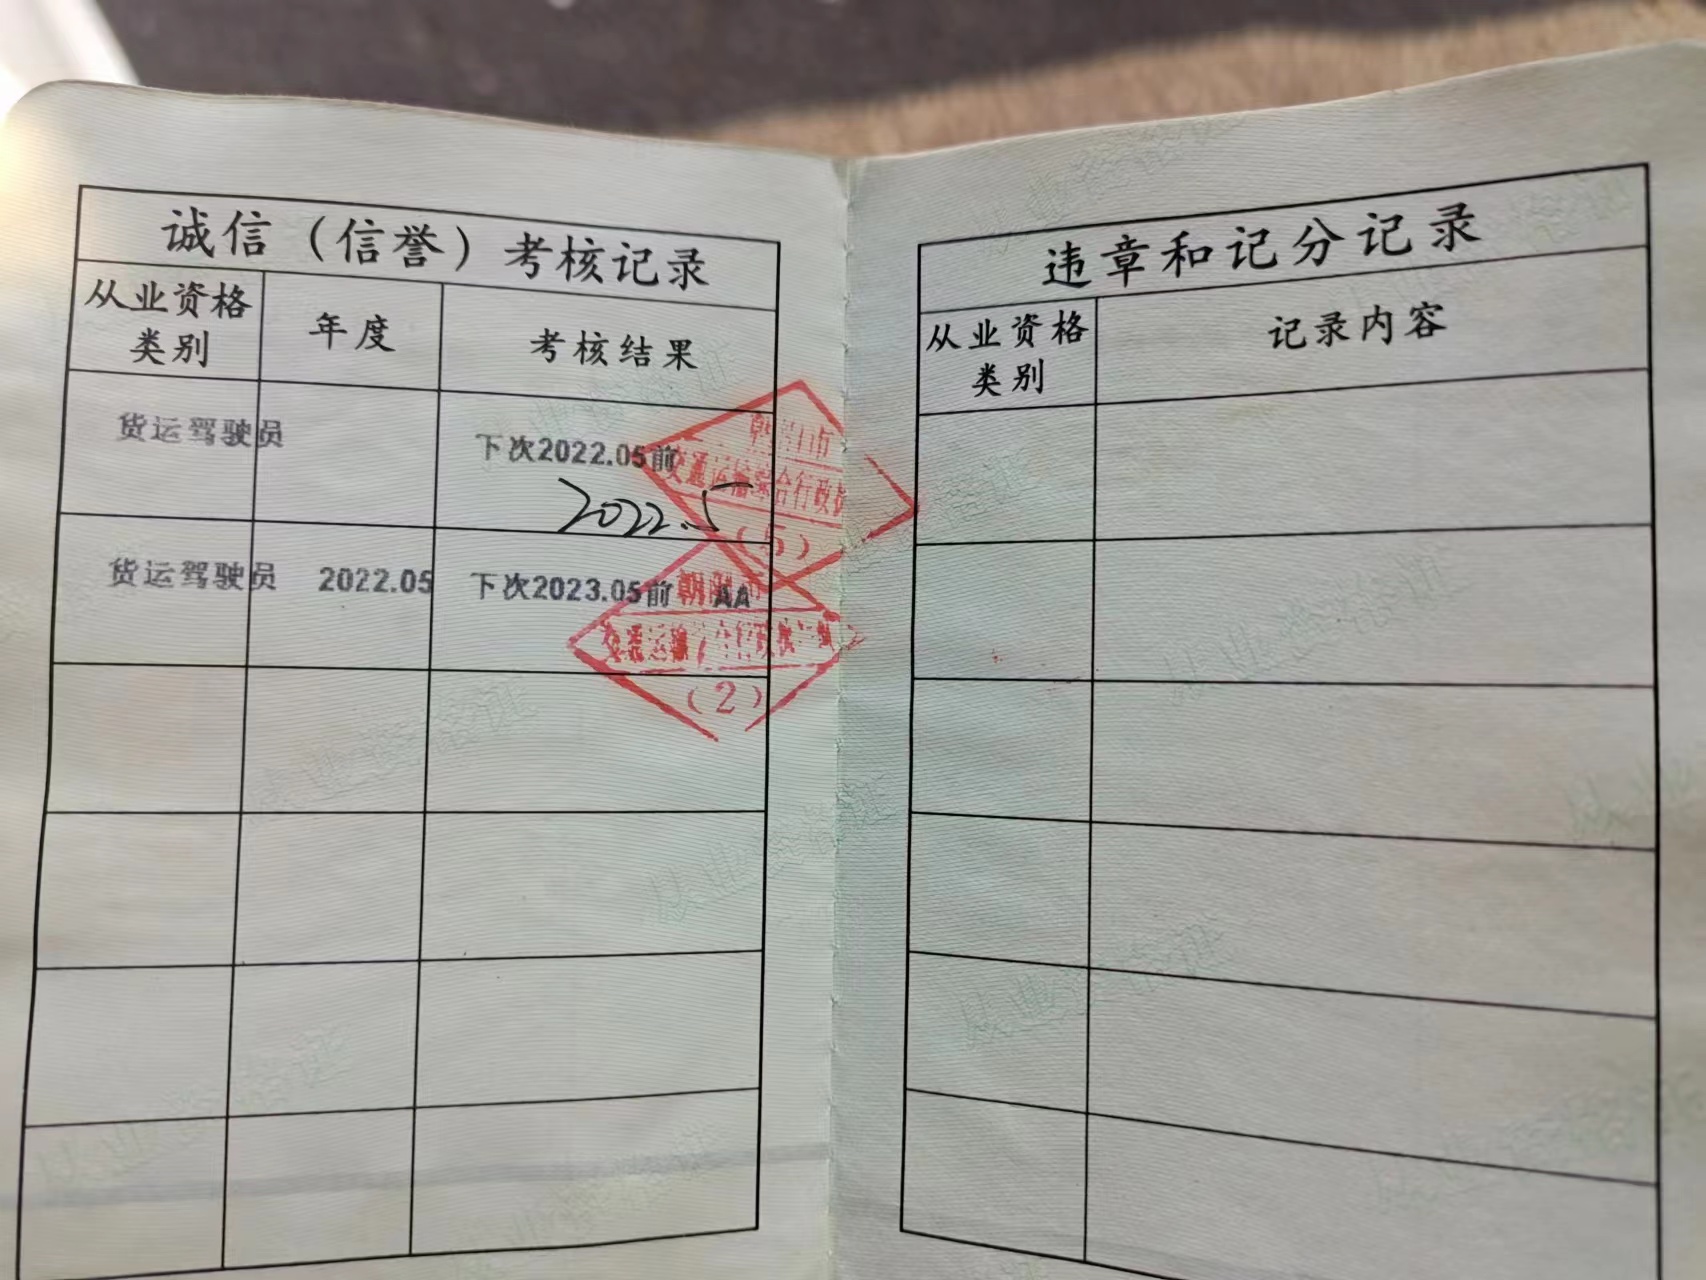 诚信（信誉）考核记录
从业资格类别 年度 考核结果
货运驾驶员 下次2022.05前
2022.5
货运驾驶员 2022.05 下次2023.05前 AA
市
交通运输综合行政执
（5）
朝阳市
（2）
违章和记分记录
从业资格类别 记录内容
从业资格证